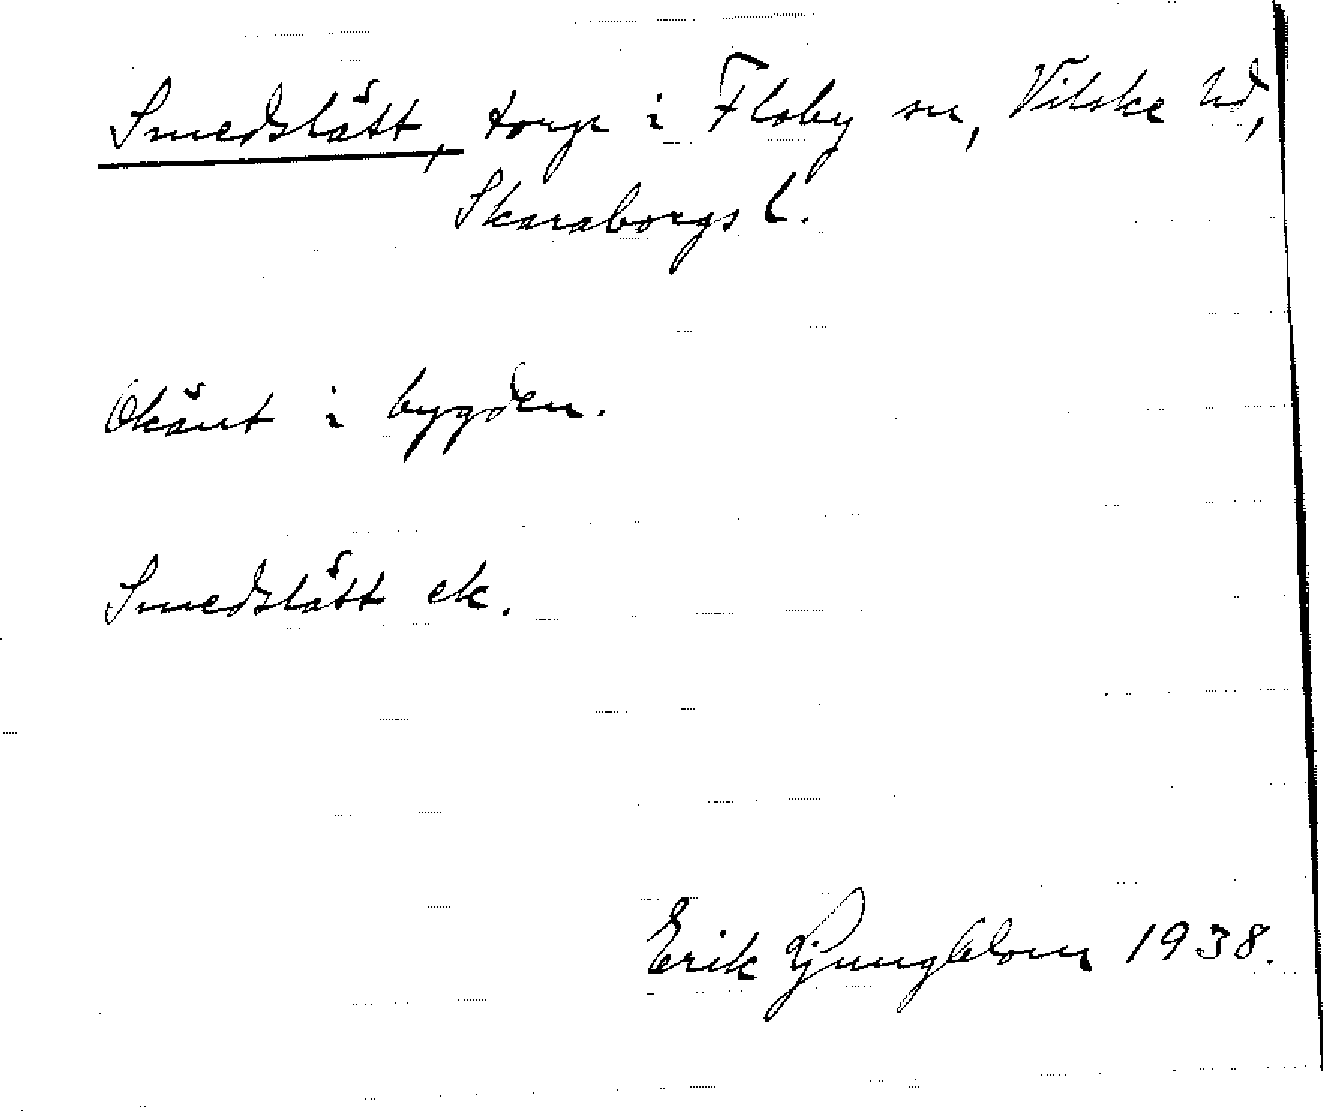 Smedslätt, torp i Floby sn, Vilske hd,
Skaraborgs l.
Okänt i bygden.
Smedslätt ek.
Erik Ljungblom 1938.